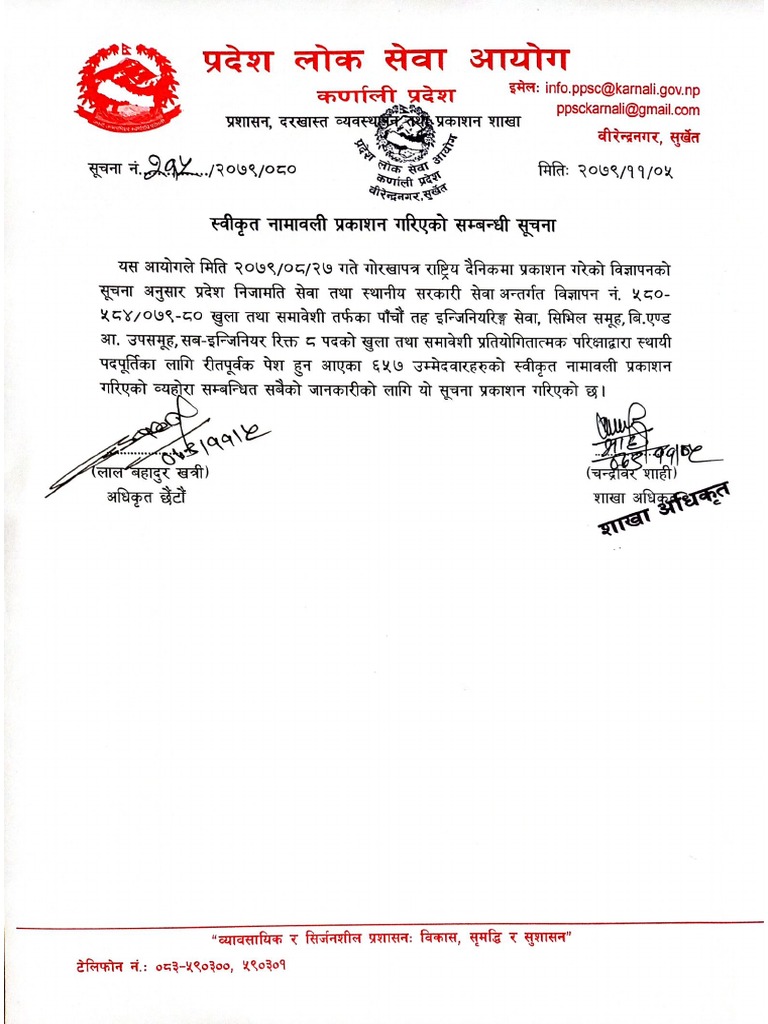 प्रदेश लोक सेवा आयोग
कर्णाली प्रदेश
इमेल: info.ppsc@karnali.gov.np
ppsckarnali@gmail.com
प्रशासन, दरखास्त व्यवस्थापन तथा प्रकाशन शाखा
वीरेन्द्रनगर, सुर्खेत
प्रदेश लोक सेवा आयोग
कर्णाली प्रदेश
वीरेन्द्रनगर, सुर्खेत
सूचना नं. २१५ /२०७९/०८०
मितिः २०७९/११/०५
स्वीकृत नामावली प्रकाशन गरिएको सम्बन्धी सूचना
यस आयोगले मिति २०७९/०८/२७ गते गोरखापत्र राष्ट्रिय दैनिकमा प्रकाशन गरेको विज्ञापनको
सूचना अनुसार प्रदेश निजामति सेवा तथा स्थानीय सरकारी सेवा अन्तर्गत विज्ञापन नं. ५८०-
५८४/०७९-८० खुला तथा समावेशी तर्फका पाँचौं तह इन्जिनियरिङ्ग सेवा, सिभिल समूह, बि.एण्ड
आ. उपसमूह, सब-इन्जिनियर रिक्त ८ पदको खुला तथा समावेशी प्रतियोगितात्मक परिक्षाद्वारा स्थायी
पदपूर्तिका लागि रीतपूर्वक पेश हुन आएका ६५७ उम्मेदवारहरुको स्वीकृत नामावली प्रकाशन
गरिएको व्यहोरा सम्बन्धित सबैको जानकारीको लागि यो सूचना प्रकाशन गरिएको छ।
(लाल बहादुर खत्री)
अधिकृत छैटौं
(चन्द्रविर शाही)
शाखा अधिकृत
शाखा अधिकृत
"व्यावसायिक र सिर्जनशील प्रशासनः विकास, सृमद्धि र सुशासन"
टेलिफोन नं.: ०८३-५९०३००, ५९०३०१